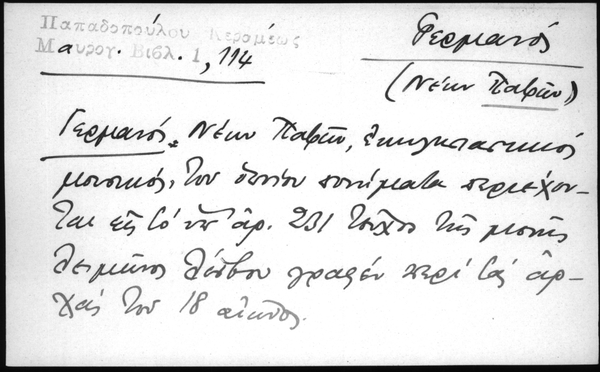 Παπαδοπούλου Κεραμέως
Μαυρογ. Βιβλ. 1, 114
Γερμανός
(Νέων Πατρῶν)
Γερμανός Νέων Πατρῶν, ἐκκλησιαστικός
μουσικός, τοῦ ὁποίου ποιήματα περιέχον-
ται εἰς τό ὑπ' ἀρ. 231 τεῦχος τῆς μονῆς
Λειμῶνος Λέσβου γραφέν περί τάς ἀρ-
χάς τοῦ 18 αἰῶνος.